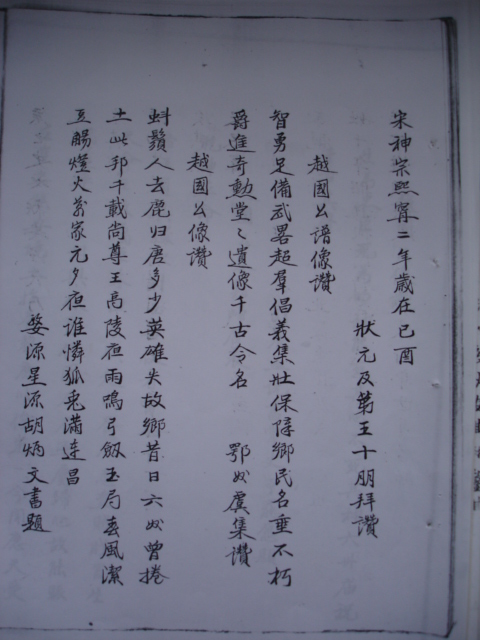 宋神宗熙甯二年歲在己酉
狀元及第王十朋拜讚
越國公譜像讚
智勇足備武畧超羣倡義集壯保障鄉民名垂不朽
爵進奇勳堂〻遺像千古令名 鄂奴虞集讚
越國公像讚
蚪鬚人去鹿归唐多少英雄失故鄉昔日六奴曾捲
土此邦千載尚尊王高陵夜雨鳴弓劔玉局春風潔
豆觴燈火萬家元夕夜誰憐狐兎滿連昌
婺源星源胡炳文書題